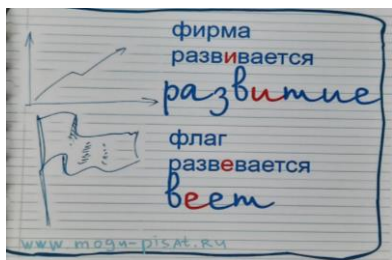 фирма
развивается
развитие
флаг
развевается
веет
www.mogu-pisat.ru